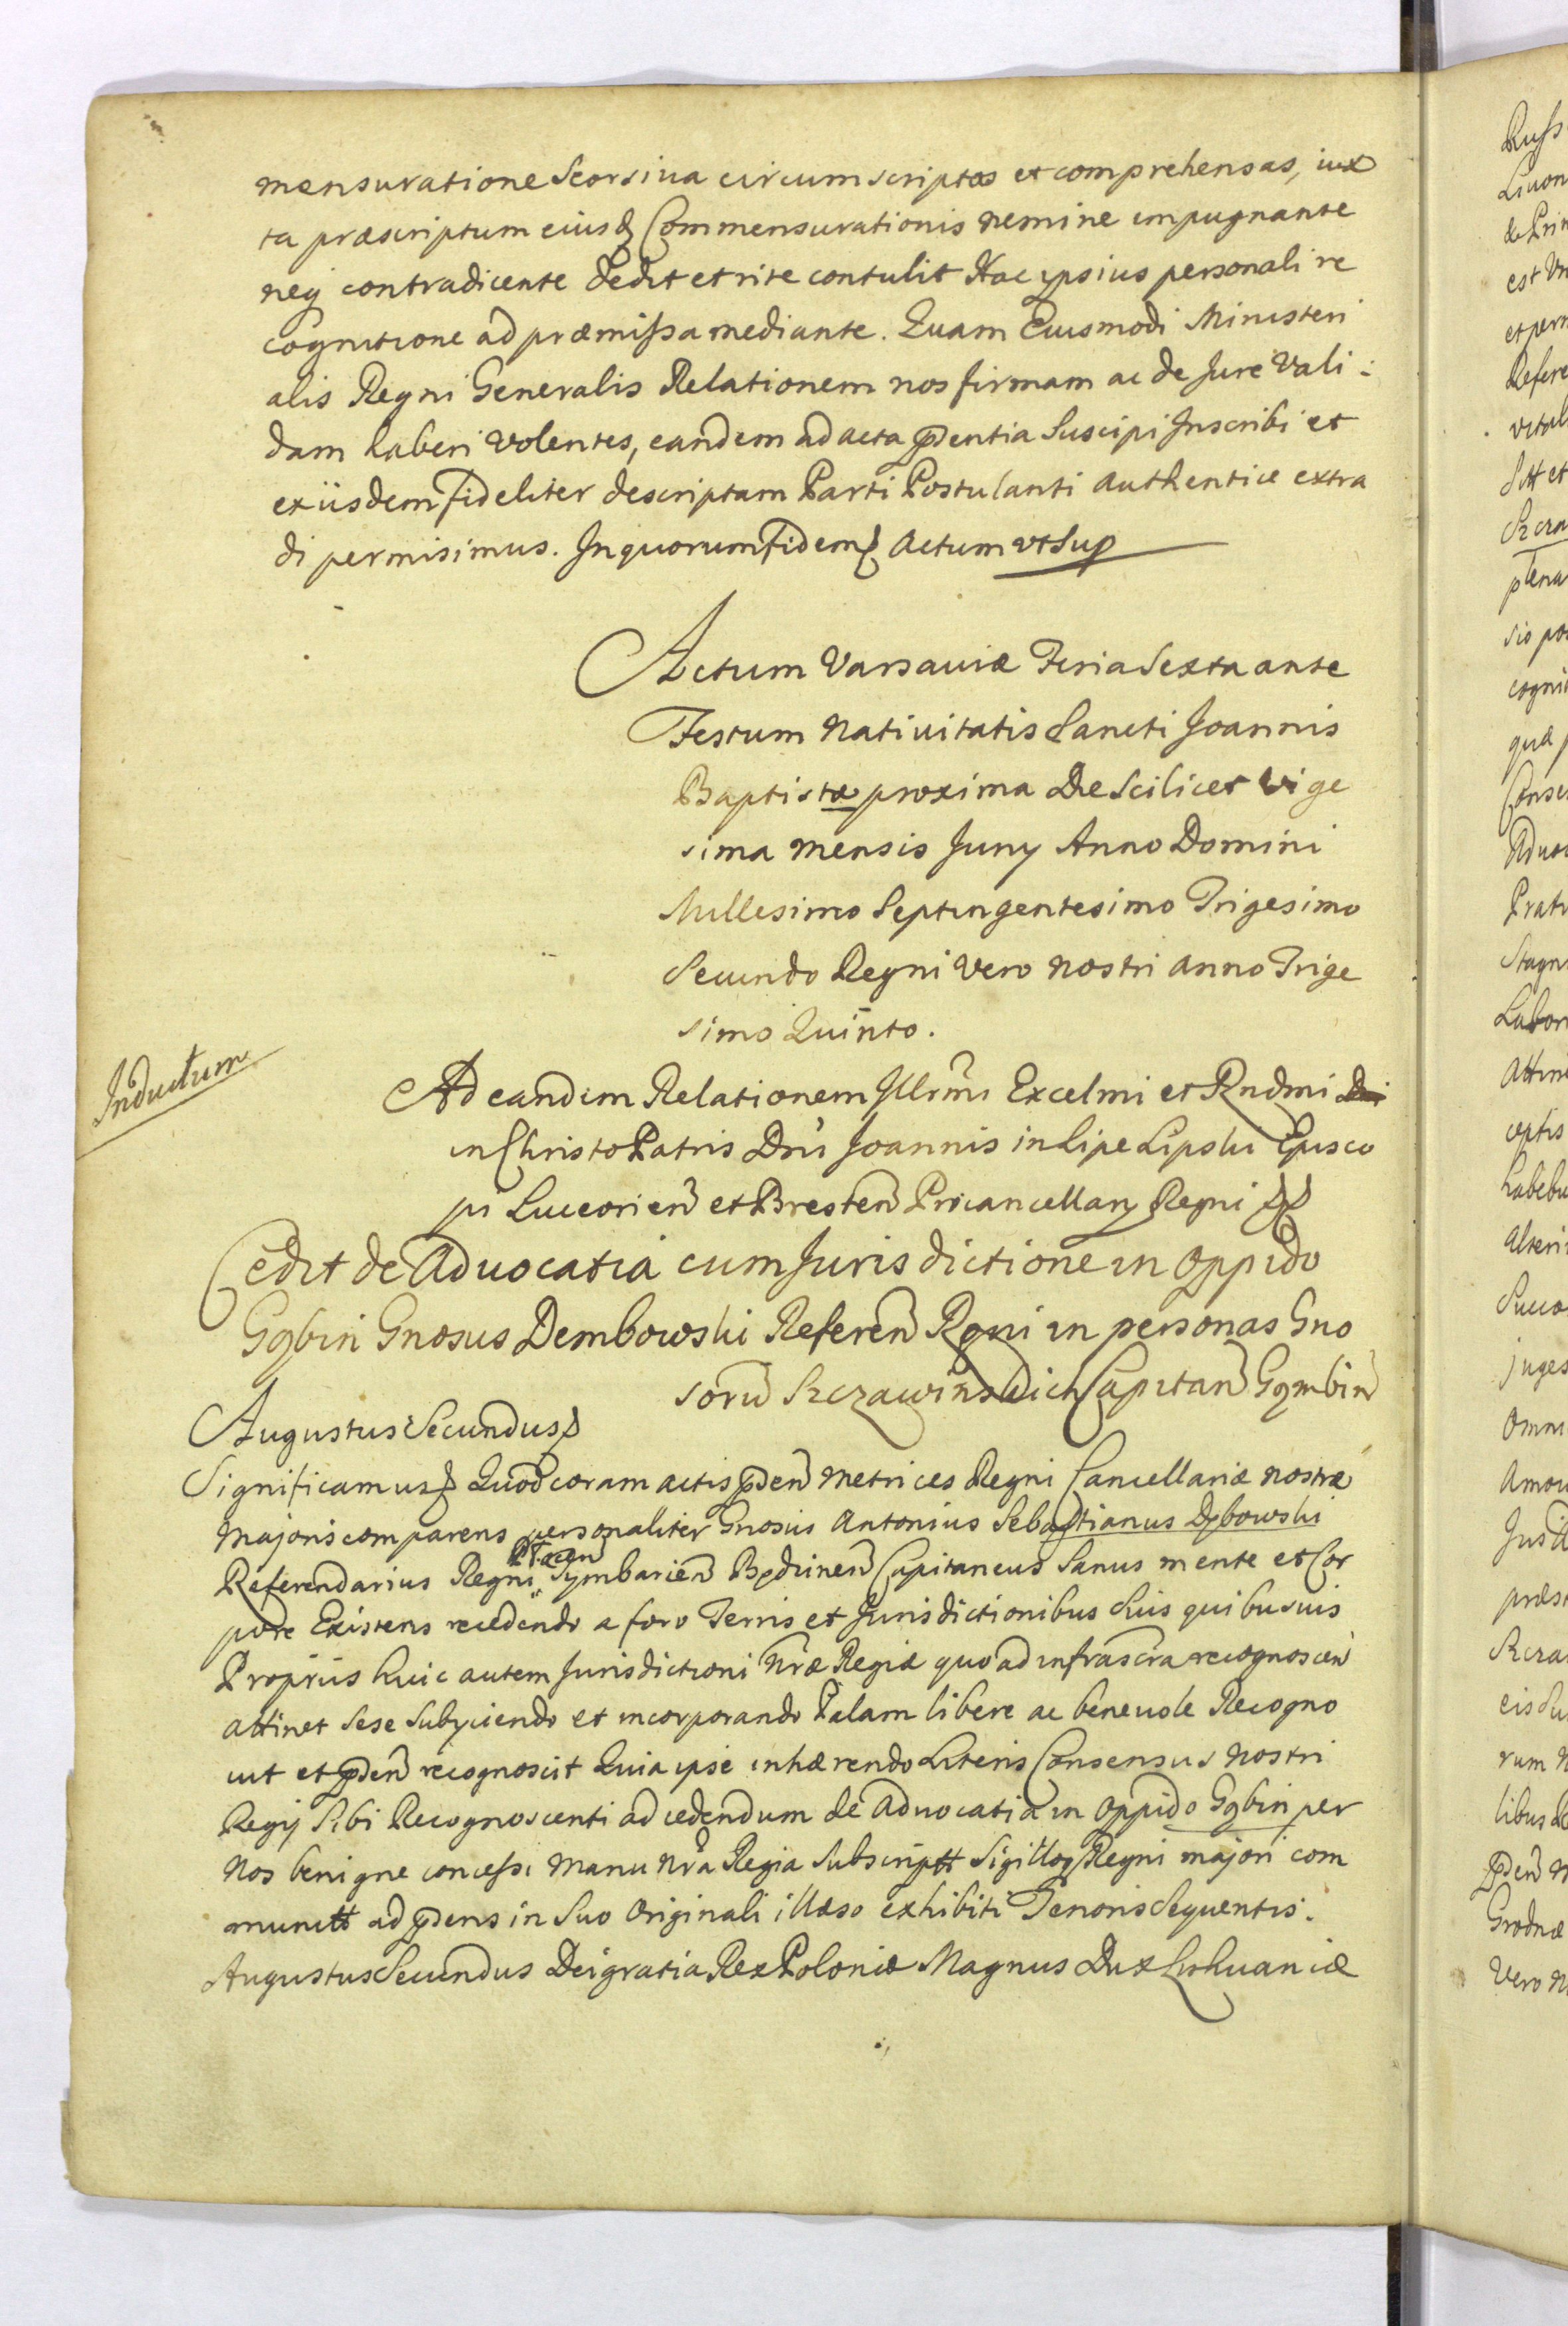 mensuratione Seorsiva circumscriptas et comprehensas, iux
ta præscriptum eiusd Commensurationis nemine impugnante
neq contradicente dedit et rite contulit Hac ipsius personali re
cognitione ad præmissa mediante. Quam Eiusmodi Ministeri
alis Regni Generalis Relationem nos firmam ac de Jure Vali:
dam haberi volentes, eandem ad acta pdentia Suscipi Inscribi et
ex iisdem fideliter descriptam Parti Postulanti authentice extra
di permisimus. In quorum fidem Actum ut Sup
Actum Varsaviæ Feria Sexta ante
Festum Nativitatis Sancti Joannis
Baptistæ proxima Die Scilicet Vige
sima mensis Juny Anno Domini
Millesimo Septingentesimo Trigesimo
Secundo Regni Vero nostri anno Trige
simo Quinto.
Inductum
Ad eandem Relationem Illrmi Excelmi et Rndmi
in Christo Patris Dni Joannis in Lipe Lipski Episco
pi Luceorien et Bresten Procancellary Regni
Cedit de Advocatia cum Jurisdictione in Oppido
Gąbin Gnosus Dembowski Referen Rgni in personas Gno
soru Szczawinskich Capitan Gąmbin
Augustus Secundus
Significamus Quod coram actis pden Metrices Regni Cancellariæ nostræ
Majoris comparens personaliter Gnosus Antonius Sebastianus Dębowski
Referendarius Regni Płocen Tymbarien Będzinen Capitaneus Sanus mente et Cor
pore Existens recedendo a foro Terris et Jurisdictionibus Suis quibusvis
Proprüs huic autem Jurisdictioni Nræ Regiæ quo ad infrascra recognoscen
attinet sese Subyciendo et incorporando Palam libere ac benevole Recogno
vit et pden recognoscit Quia ipse inhærendo Literis Consensus Nostri
Regij Sibi Recognoscenti ad cedendum de Advocatia in Oppido Gąbin per
Nos benigne concessi Manu Nra Regia Subscriptt Sigilloq Regni majori com
munitt ad pdens in Suo Originali illæso exhibiti Tenoris Sequentis.
Augustus Secundus Dei gratia Rex Poloniæ Magnus Dux Lithuaniæ